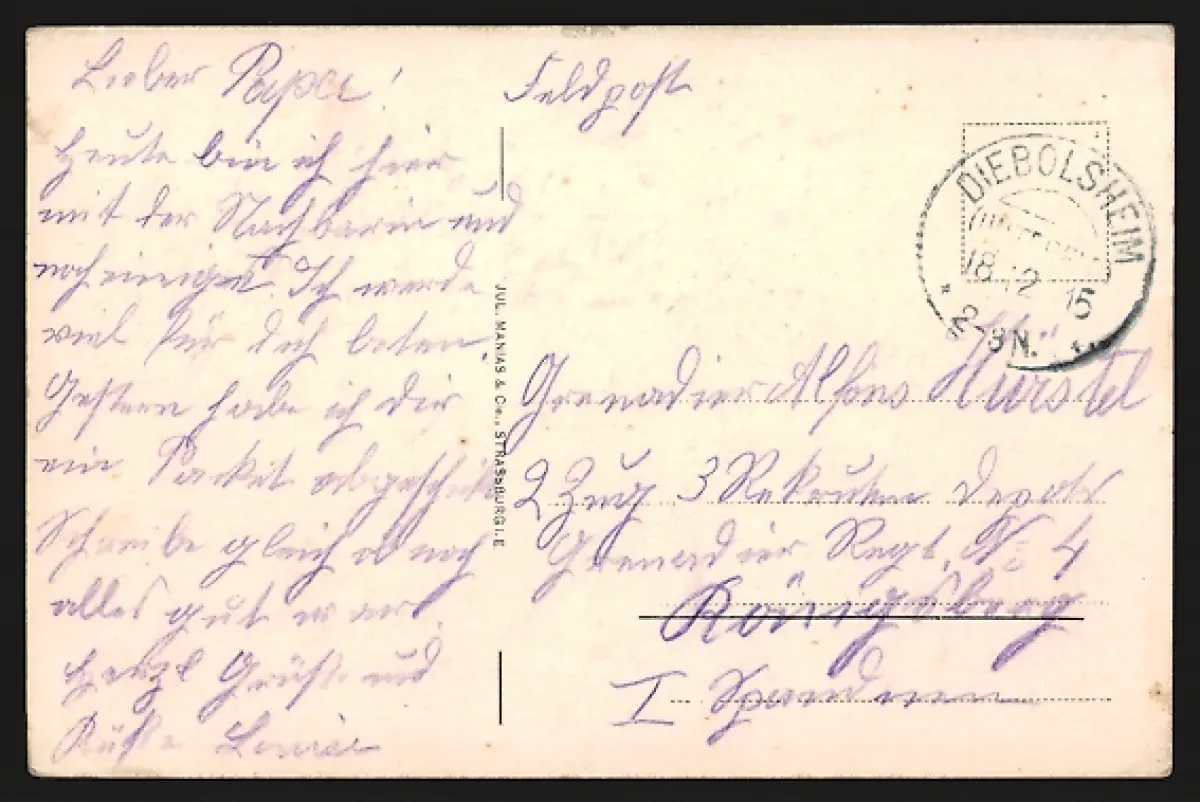 Lieber Papa!
Heute bin ich hier
mit der Nachbarin und
noch einiges. Ich werde
viel für dich beten.
Gestern habe ich dir
ein Packet abgeschickt
Schreibe gleich ob noch
alles gut war.
Herzl Grüße und
Küße Louise
Feldpost
DIEBOLSHEIM
18 12 15
2-3N.
JUL. MANIAS & Cie., STRASSBURG I. E
Grenadier Alfons Hürstel
2 Zug 3 Rekruten Depots
Grenadier Regt. No 4
Königsberg
I Spandienen